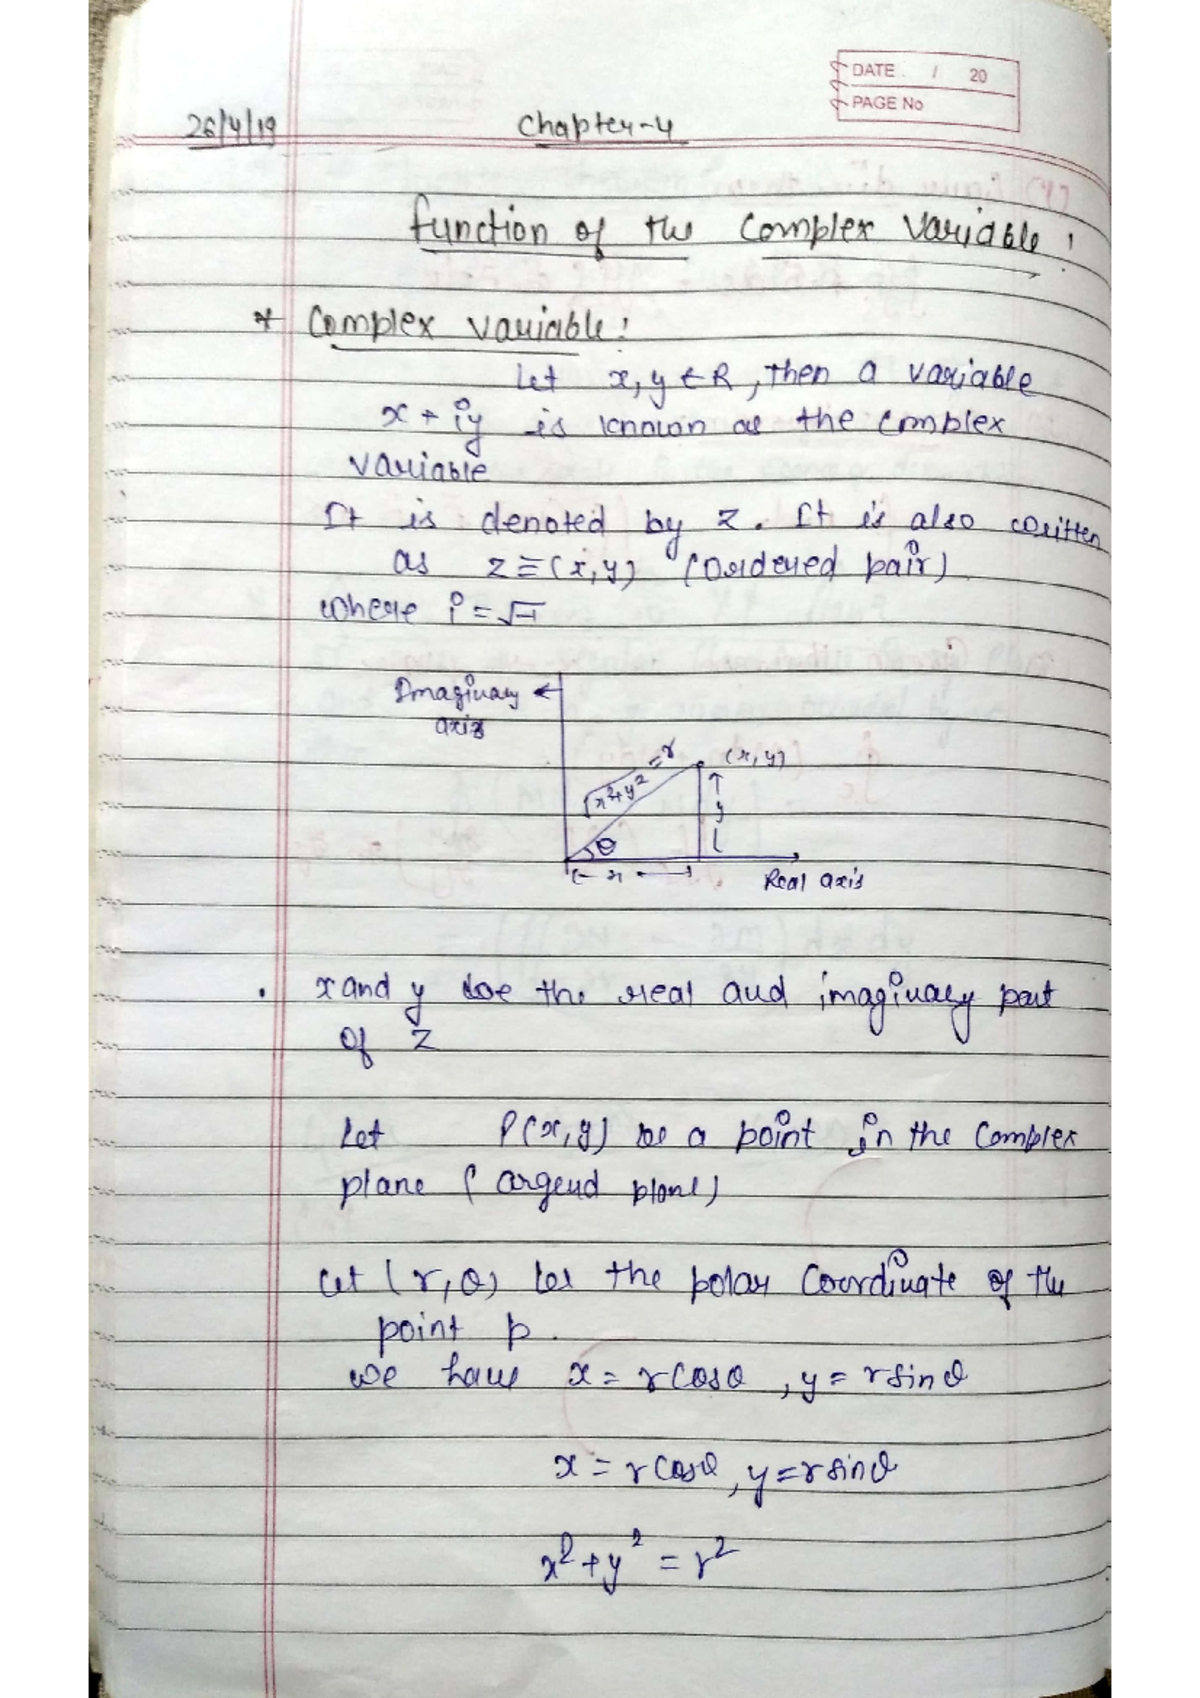 DATE / 20
PAGE No
26/4/19 Chapter-4
function of the Complex Variable :
* Complex variable :
Let x, y ∈ R, then a variable
x + iy is known as the complex
variable
It is denoted by z. It is also written
as z ≡ (x, y) (ordered pair)
where i = √-1
Imaginary
axis
√x²+y² = r
(x, y)
y
θ
x
Real axis
. x and y are the real and imaginary part
of z
Let P(x, y) be a point in the complex
plane (argend plane)
Let (r, θ) be the polar coordinate of the
point p.
we have x = r cosθ , y = r sinθ
x = r cosθ , y = r sinθ
x² + y² = r²